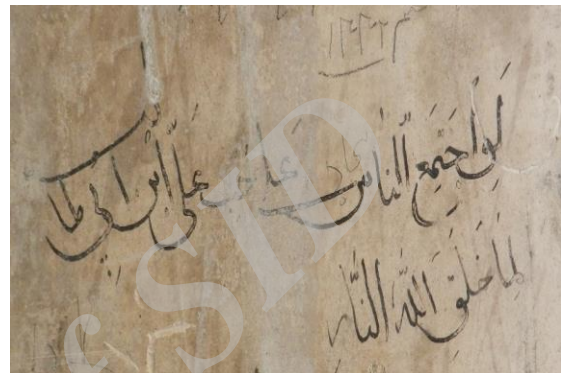 لو اجتمع الناس على حب علی ابن ابی طالب
لما خلق الله النار
SID